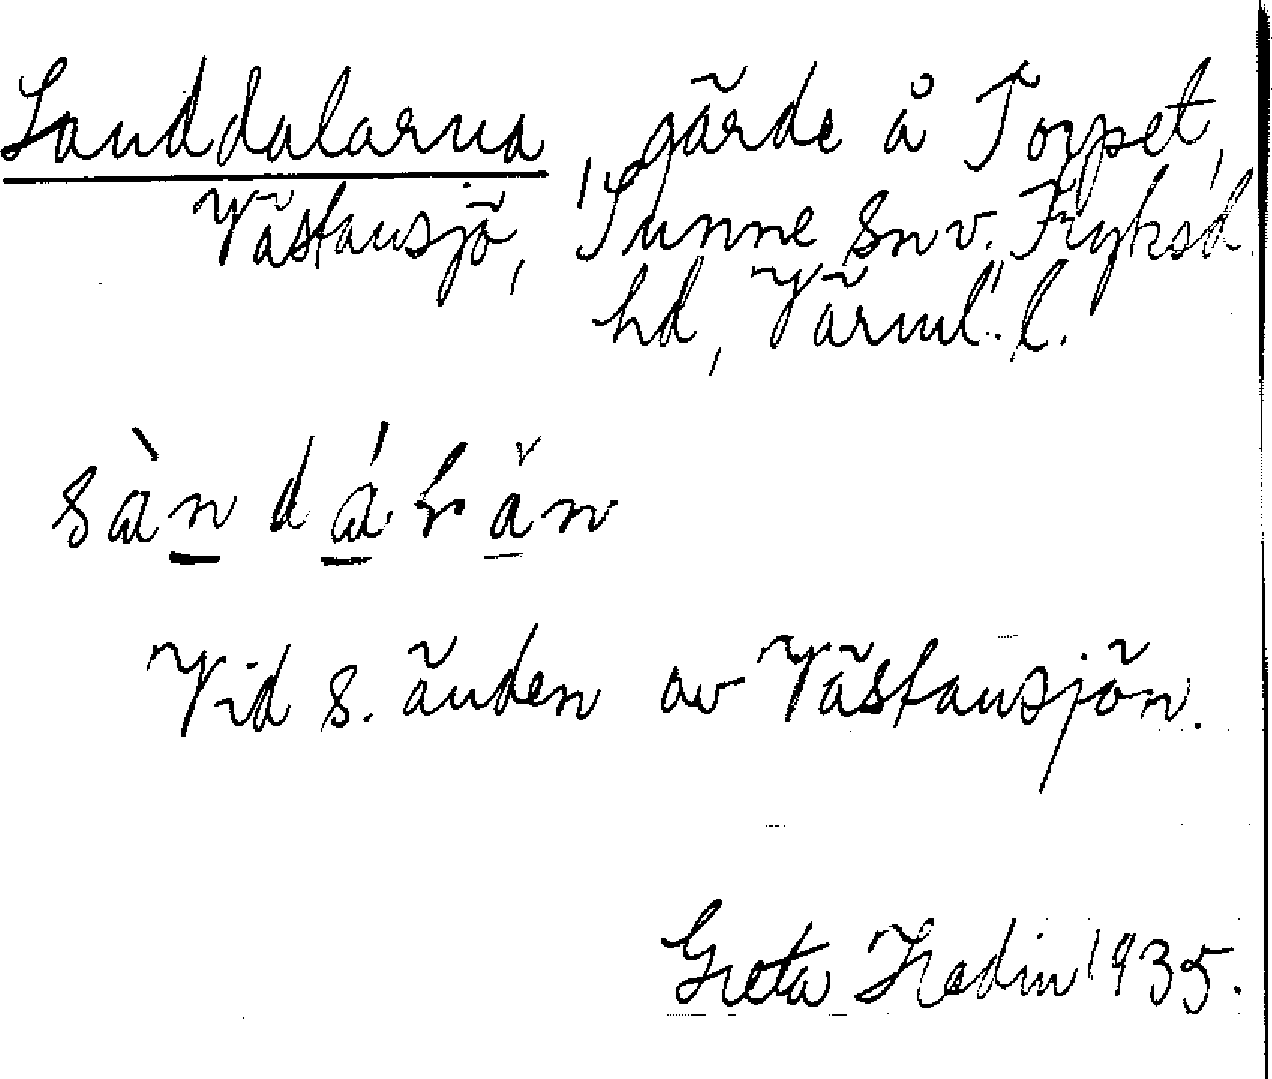 Sanddalarna, gärde å Torpet,
Västansjö, Sunne sn v. Fryksd.
hd, Värml. l.
sàndáɽăn
Vid s. änden av Västansjön.
Greta Hedin 1935.